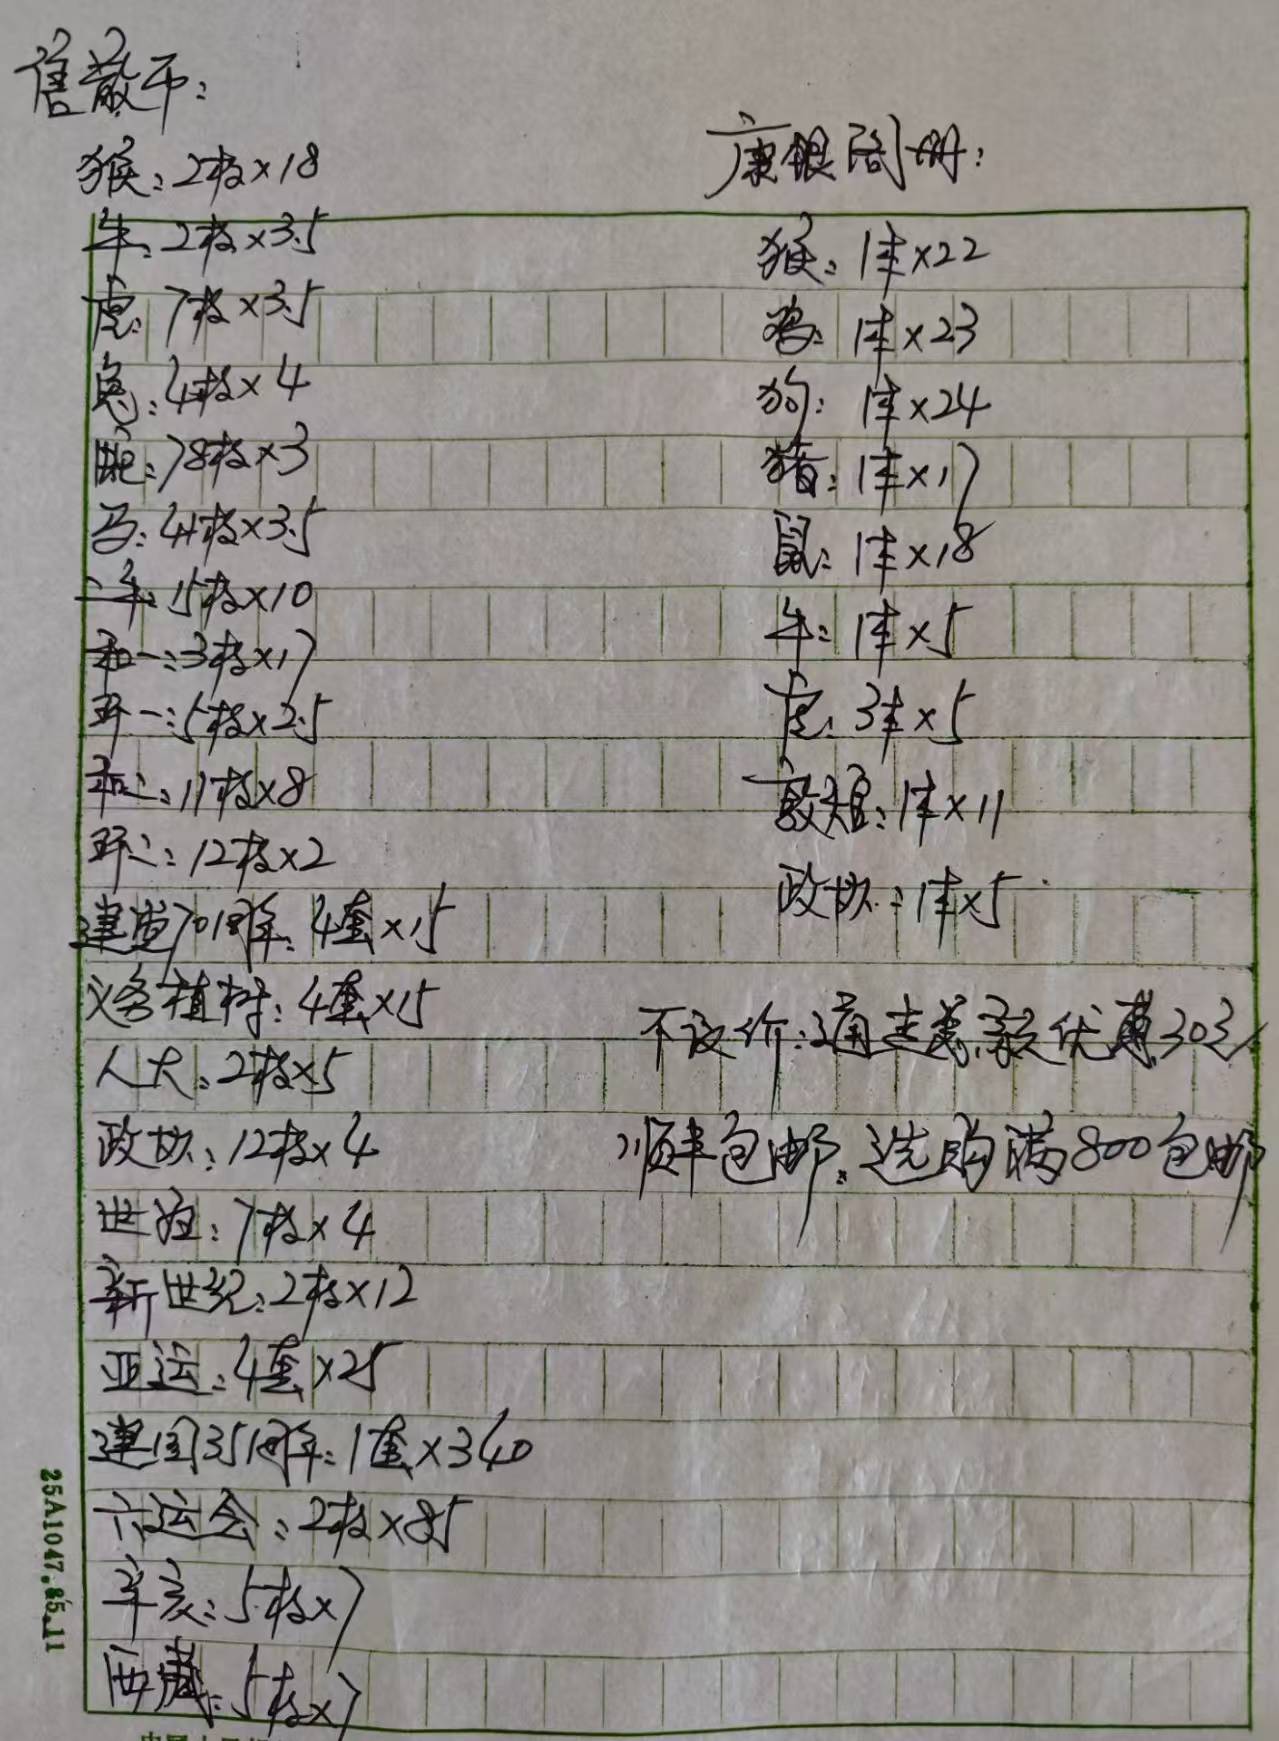 售散币:
猴:2枚×18
牛:2枚×3.5
虎:7枚×3.5
兔:4枚×4
蛇:78枚×3
马:41枚×3.5
二羊:15枚×10
和一:3枚×17
环一:5枚×2.5
和二:11枚×8
环二:12枚×2
建党70周年:4套×15
义务植树:4套×15
人大:2枚×5
政协:12枚×4
世妇:7枚×4
新世纪:2枚×12
亚运:4套×25
建国35周年:1套×340
六运会:2枚×85
辛亥:5枚×7
西藏:5枚×7
康银阁册:
猴:1本×22
鸡:1本×23
狗:1本×24
猪:1本×17
鼠:1本×18
牛:1本×5
虎:3本×5
敦煌:1本×11
政协:1本×5
不议价:通走总款优惠30元
顺丰包邮.选购满800包邮
25A1047.85.11